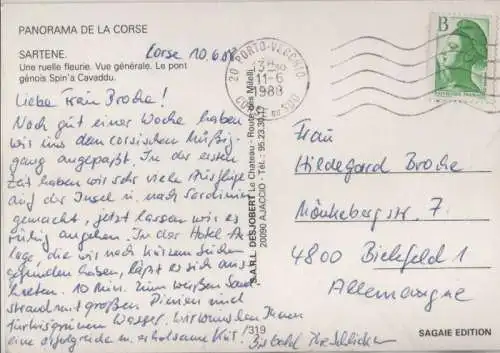 PANORAMA DE LA CORSE
SARTENE.
Une ruelle fleurie. Vue générale. Le pont
génois Spin'a Cavaddu.
Corse 10.6.88
Liebe Frau Broche!
Noch gut einer Woche haben
wir uns dem corsischen Müßig-
gang angepaßt. In der ersten
Zeit haben wir sehr viele Ausflüge
auf der Insel u. nach Sardinien
gemacht, jetzt lassen wir es
ruhig angehen. In der Hotel-An-
lage, die wir nach kurzem Suchen
gefunden haben, läßt es sich aus-
halten. 10 Min. zum weißen Sand-
strand mit großen Pinien und
türkisgrünem Wasser. Wir wünschen Ihnen
eine erfolgreiche u. erholsame Kur.
Bis bald Ihre
S.A.R.L. DESJOBERT Le Chateau - Route des Milelli
20090 AJACCIO - Tél.: 95.23.30
/319
20 PORTO-VECCHIO
11-6
1988
CORSE DU SUD
B
Frau
Hildegard Broche
Mönkebergstr. 7
4800 Bielefeld 1
Allemagne
SAGAIE EDITION